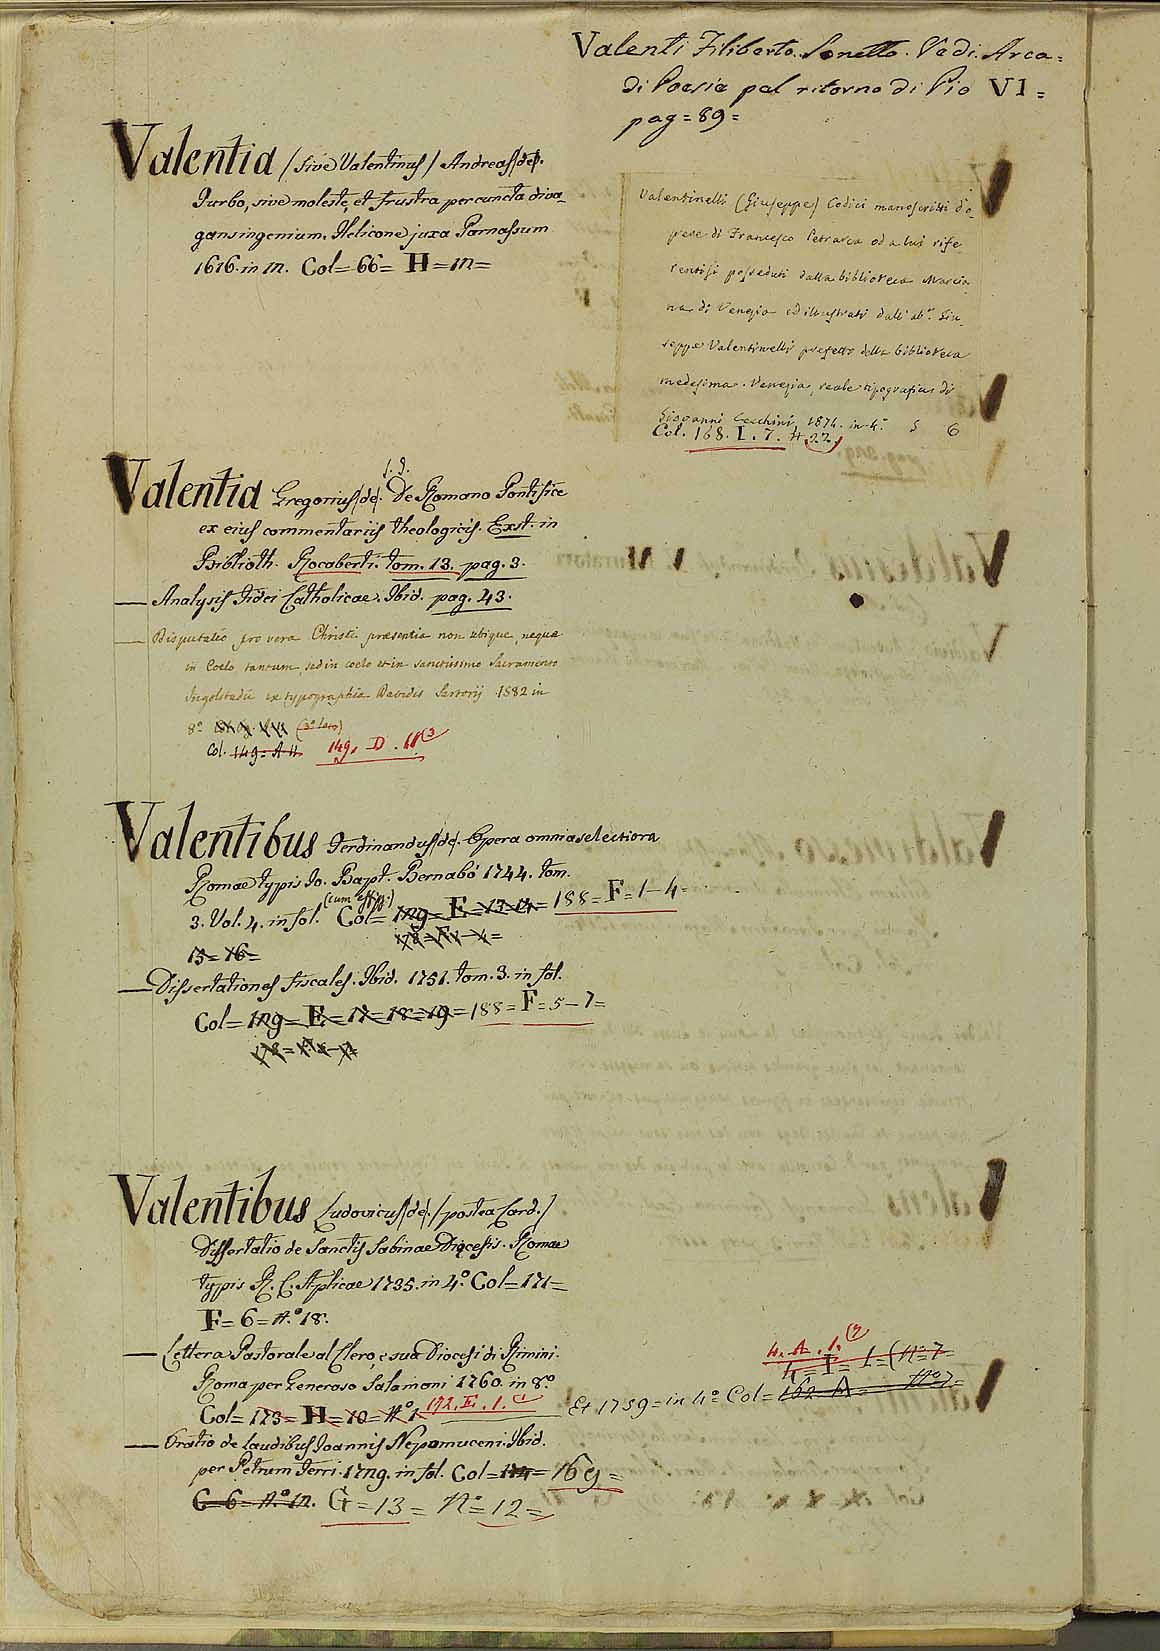 Valenti Filiberto. Sonetto. Vedi. Arca=
di Poesie pel ritorno di Pio VI=
pag=89=
Valentia (sive Valentinus) Andreas (de).
Turbo, sive moleste, et frustra per cuncta diva-
gans ingenium. Helicone juxa Parnassum
1616. in 12. Col=66= H=12=
Valentinelli (Giuseppe) Codici manoscritti d'o-
pere di Francesco Petrarca od a lui rife-
rentisi posseduti dalla biblioteca Marcia-
na di Venezia ed illustrati dall'ab.e Giu-
seppe Valentinelli prefetto della biblioteca
medesima. Venezia, reale tipografia di
Giovanni Cecchini, 1874. in-4.° 6
Col. 168. I. 7. # 22.
Valentia Gregorius (de). S. J. De Romano Pontifice
ex eius commentariis theologicis. Exst. in
Biblioth. Rocaberti. tom. 13. pag. 3.
— Analysis Fidei Catholicae. Ibid. pag. 43.
— Disputatio pro vera Christi praesentia non ubique, neque
in Coelo tantum, sed in coelo et in sanctissimo Sacramento
Ingolstadii ex typographia Davidis Sartorij 1882 in
8°
Col. 149=A 11 149. D. 11 (3
Valentibus Ferdinandus (de). Opera omnia selectiora
Romae typis Io. Bapt. Bernabò 1744. tom.
3. Vol. 4. in fol. (cum effig.) Col= 129= E=13-14= 188=F=1-4=
15=16=
— Dissertationes Fiscales. Ibid. 1751. tom. 3. in fol.
Col=129= E=17=18=19= 188=F=5-7=
Valentibus Ludovicus (de). (postea Card.)
Dissertatio de Sanctis Sabinae Diocesis. Romae
typis R. C. Aplicae 1735. in 4.° Col=171=
F=6=N.° 18.
— Lettera Pastorale al Clero, e sua Diocesi di Rimini.
Roma per Generoso Salamoni 1760. in 8.°
Col=173=H=10=N° 1 192. E. 1. (1
Et 1759=in 4° Col=162 A= N° 7=
4=I= 1=(N=7
4. A. 1. (7
— Oratio de laudibus Joannis Nepomuceni. Ibid.
per Petrum Ferri. 1729. in fol. Col=174= 169=
G=6=N.° 12. G=13=N°=12=